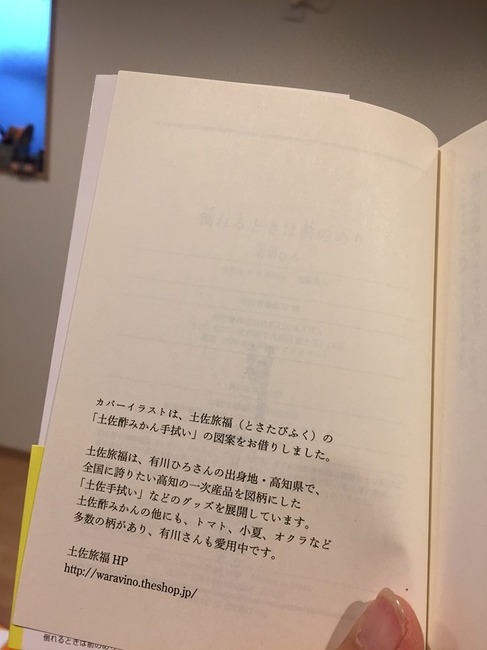 カバーイラストは、土佐旅福（とさたびふく）の
「土佐酢みかん手拭い」の図案をお借りしました。
土佐旅福は、有川ひろさんの出身地・高知県で、
全国に誇りたい高知の一次産品を図柄にした
「土佐手拭い」などのグッズを展開しています。
土佐酢みかんの他にも、トマト、小夏、オクラなど
多数の柄があり、有川さんも愛用中です。
土佐旅福 HP
http://waravino.theshop.jp/
倒れるときは前のめ